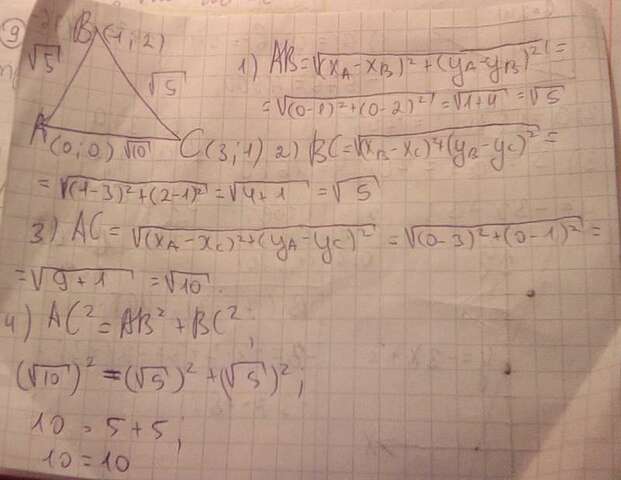 9
B(1; 2)
√5
√5
A(0; 0) √10 C(3; 1)
1) AB = √((x_A - x_B)² + (y_A - y_B)²) =
= √((0-1)² + (0-2)²) = √(1+4) = √5
2) BC = √((x_B - x_C)² + (y_B - y_C)²) =
= √((1-3)² + (2-1)²) = √(4+1) = √5
3) AC = √((x_A - x_C)² + (y_A - y_C)²) = √((0-3)² + (0-1)²) =
= √(9+1) = √10.
4) AC² = AB² + BC²;
(√10)² = (√5)² + (√5)²;
10 = 5 + 5;
10 = 10